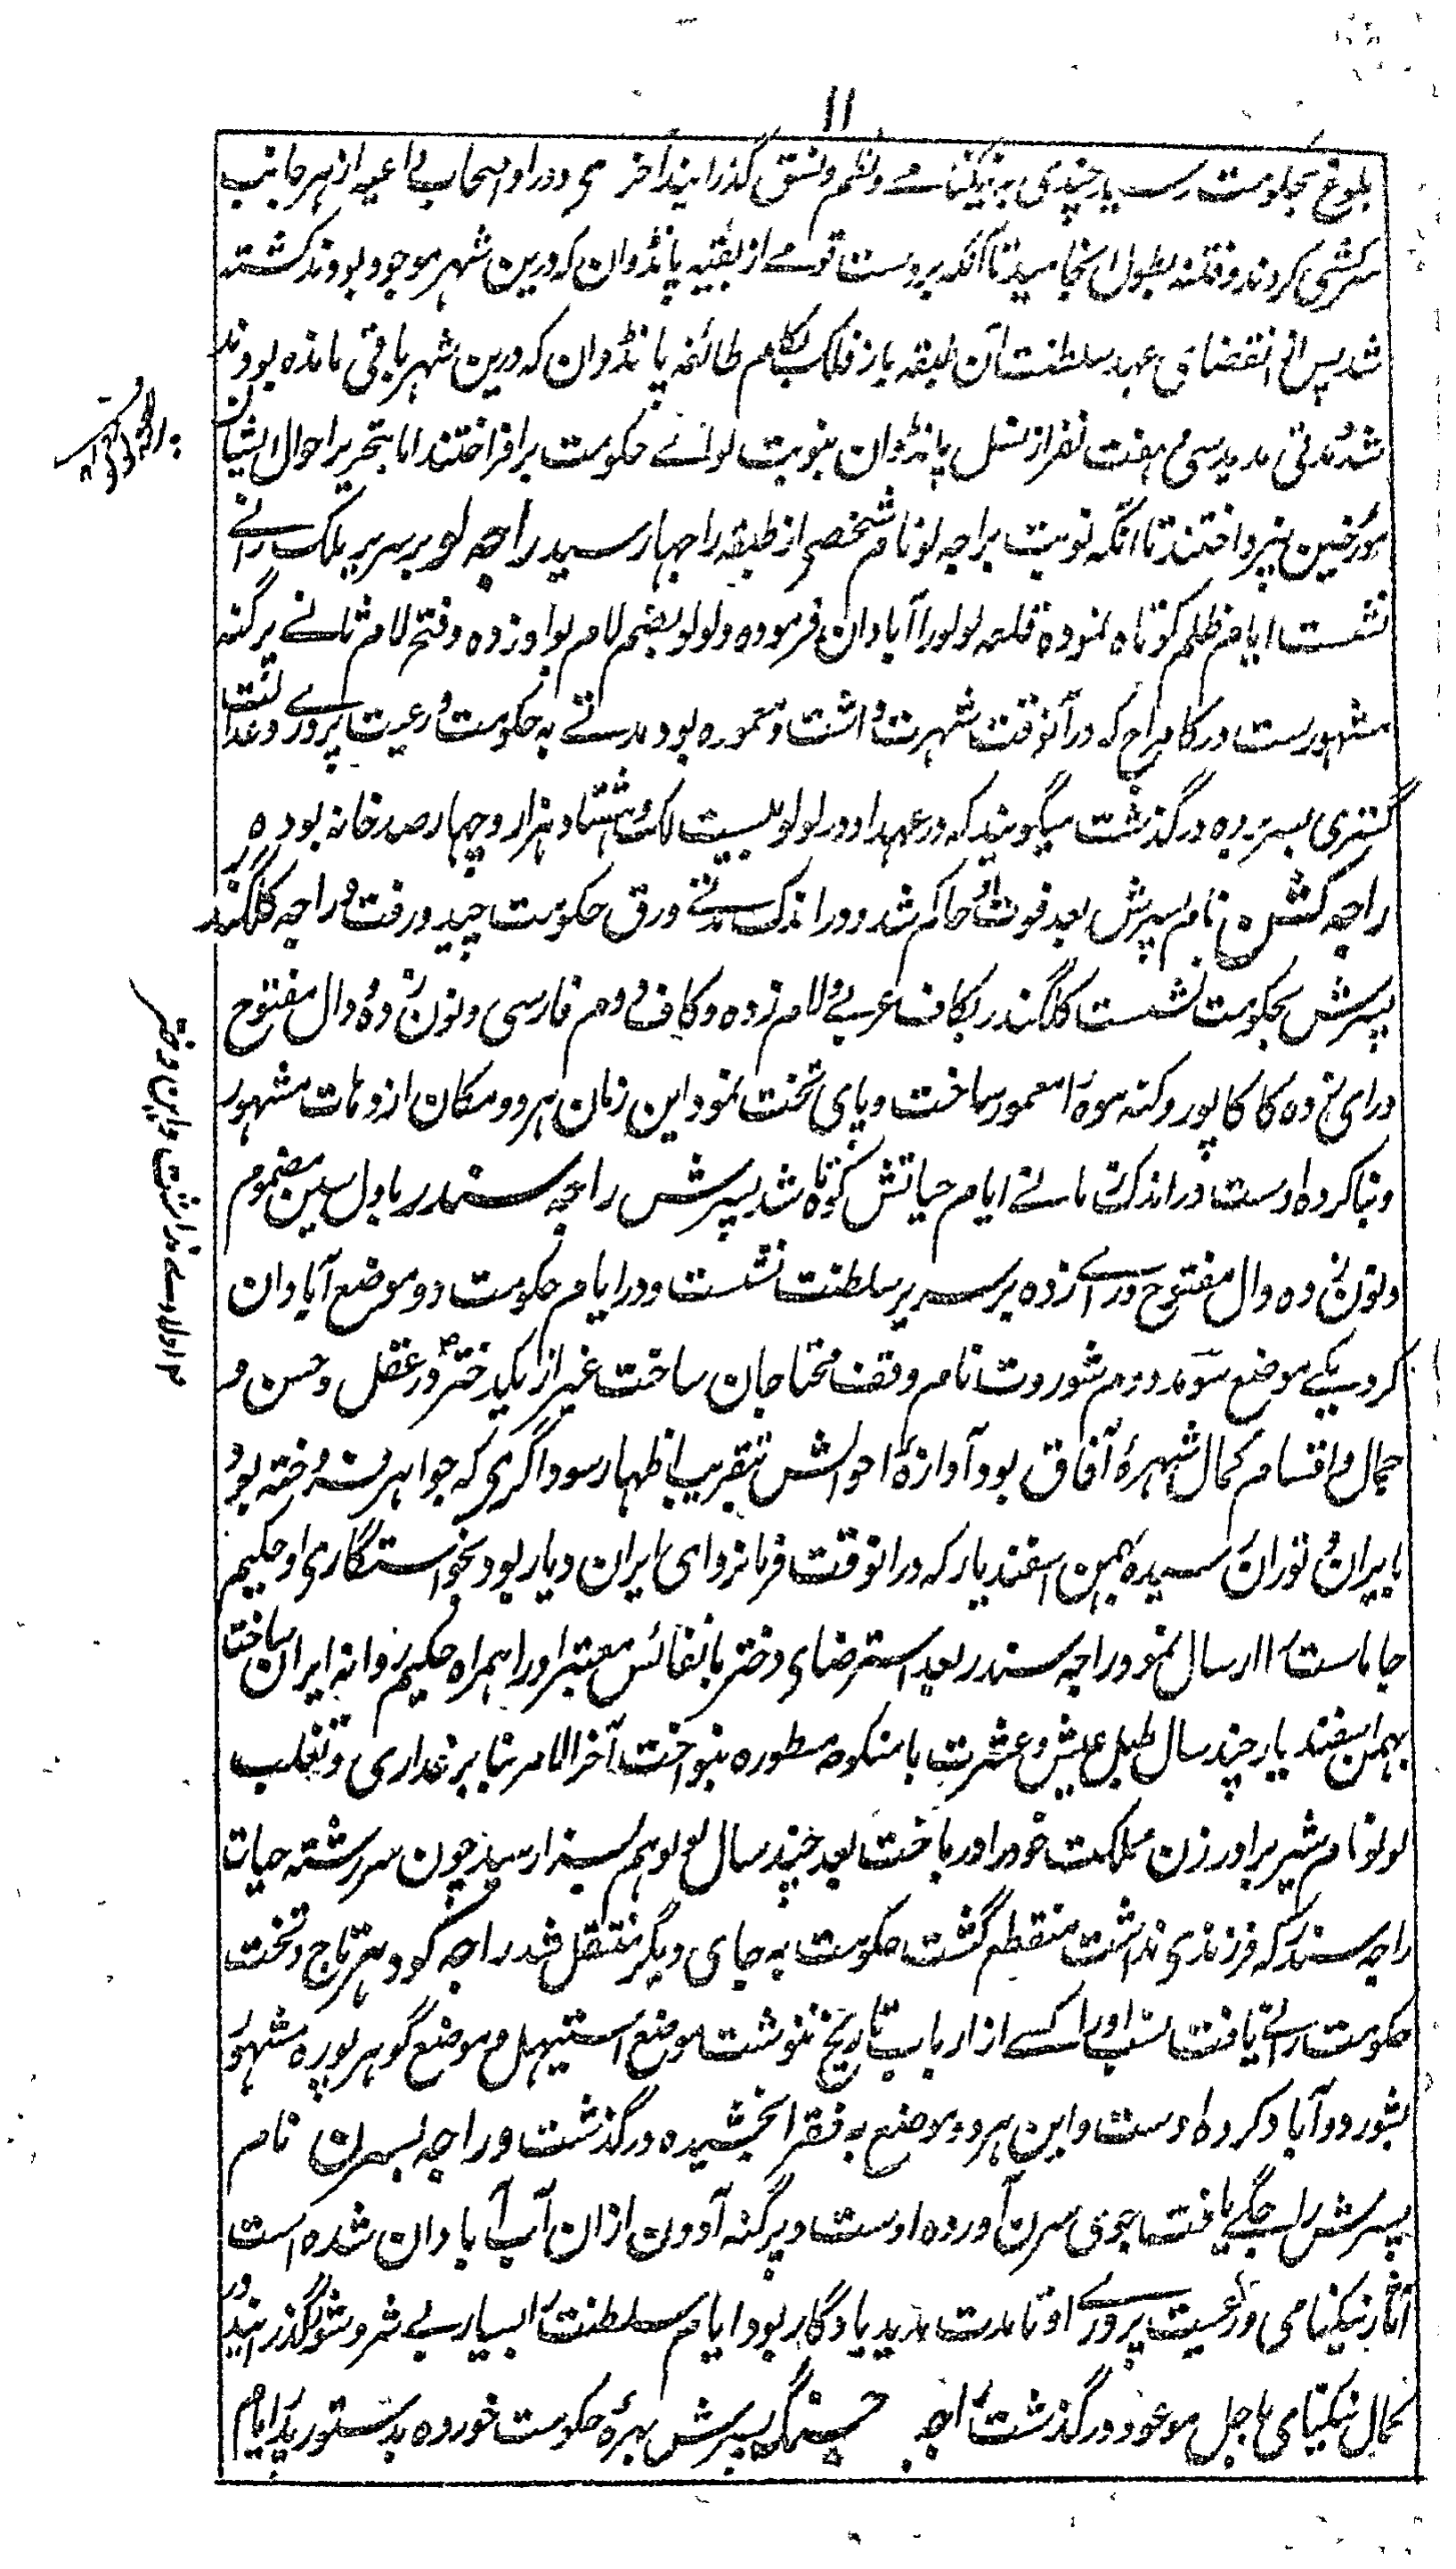 ۱۱
بلوغ بحکومت رسید چندی به نیکنامے ونظم ونسق گذرانید آخر اصحاب داعیه از هر جانب
سرکشی کردند و فتنه بطول انجامید تا آنکه بر دست قومے از بقیه پانڈوان که درین شهر موجود بودند کشته
شد پس از انقضای عهد سلطنت آن طبقه باز فلک بکام طائفه پانڈوان که درین شهر باقی مانده بودند
شد مدتی مدید سی و هفت نفر از نسل پانڈوان بنوبت لوائے حکومت برافراختند اما بتحریر احوال ایشان
مورخین نپرداختند تا آنکه نوبت براجه لو نام شخصی از طبقه راجها رسید راجه لو بر سریر ملک رانے
نشست ایام ظلم کوتاه نموده قلعه لولو را آبادان فرموده ولولو بضم لام بواو زده وفتح لام ثانے پرگنه
مشهورست در کامراج که در آنوقت شهرت داشت ومعموره بود مدتے به حکومت ورعیت پروری وعدالت
گستری بسر برده درگذشت میگویند که در عهد او در لولو بیست لک وهشتاد هزار و چهار صد خانه بوده
راجه کشن نام پسرش بعد فوت او حاکم شد و در اندک مدتے ورق حکومت چید و رفت و راجه کلگندر
پسرش بحکومت نشست کلگندر بکاف عربے ولام زده وکاف دوم فارسی ونون زده ودال مفتوح
ورای زده کاکاپور وکنه موه را معمور ساخت و پای تخت نمود این زمان هر دو مکان از دهات مشهور
وبنا کرده اوست در اندک زمانے ایام حیاتش کوتاه شد پسرش راجه سندر باول سین مضموم
ونون زده ودال مفتوح ورائے زده بر سریر سلطنت نشست ودر ایام حکومت دو موضع آبادان
کرد یکے موضع دوم شوروت نام وقف محتاجان ساخت غیر از یکدختر در عقل وحسن و
جمال واقسام کمال شهرهٔ آفاق بود وآوازهٔ احوالش بتقریب اظهار سوداگری که جواهر فروخته بود
بایران وتوران رسیده بهمن اسفندیار که در انوقت فرمانروای ایران دیار بود بخواستگاری او حکیم
جاماست را ارسال نمود راجه سندر بعد استرضای دختر با نفائس معتبر او را همراه حکیم روانه ایران ساخت
بهمن اسفندیار چند سال طبل عیش وعشرت با منکوحه مسطوره بنواخت آخرالامر بنابر غداری وتغلب
لولو نام شریر برادر زن مملکت خود را درباخت بعد چند سال لولو هم بسزا رسید چون سررشته حیات
راجه سندر که فرزندی نداشت منقطع گشت حکومت به جای دیگر منتقل شد راجه کودهر تاج وتخت
حکومت رانے یافت نسب او را کسے از ارباب تاریخ ننوشت موضع استیهل وموضع گوهرپوره مشهور
بشوردو آباد کرده اوست واین هر دو موضع به فقرا بخشیده درگذشت و راجه سرن نام
پسرش بجایے یافت جوی سرن آورده اوست و پرگنه آدون ازان آب آبادان شده است
آثار نیکنامی ورعیت پرورے او تا مدت مدید یادگار بود وایام سلطنت را بسیار بے شر وشور گذرانید ودر
کمال نیکنامی باجل موعود درگذشت راجه جنگ پسرش بهرهٔ حکومت خورده بدستور پدر ایام
اولادے نداشت و این دختر